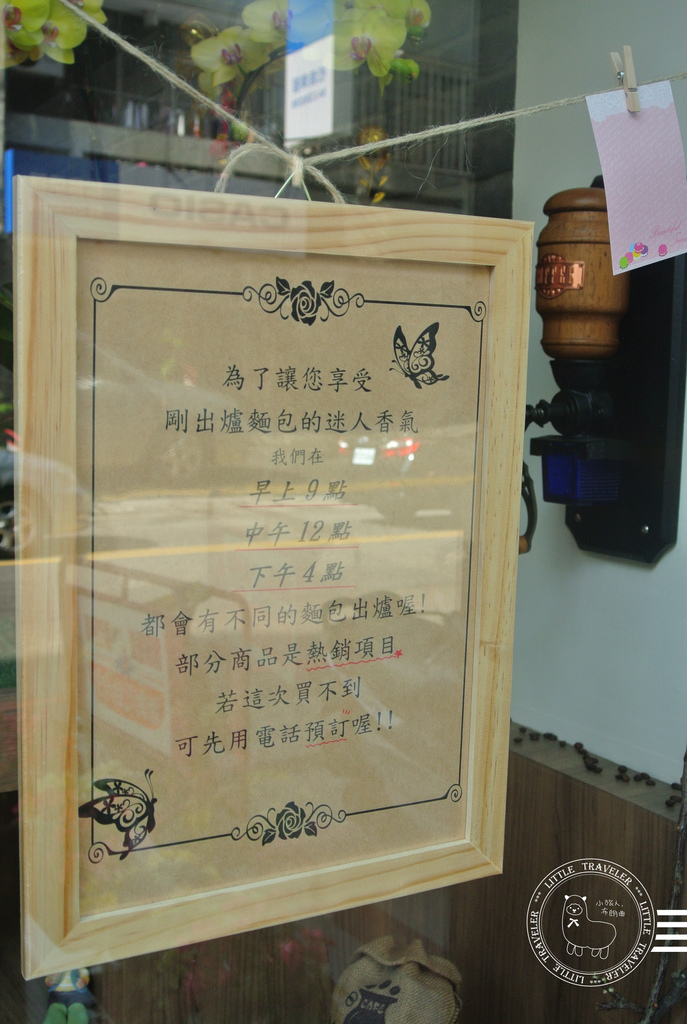 為了讓您享受
剛出爐麵包的迷人香氣
我們在
早上9點
中午12點
下午4點
都會有不同的麵包出爐喔!
部分商品是熱銷項目
若這次買不到
可先用電話預訂喔!!
CASIO
CAFE
LITTLE TRAVELER
LITTLE TRAVELER
LITTLE TRAVELER
小旅人.